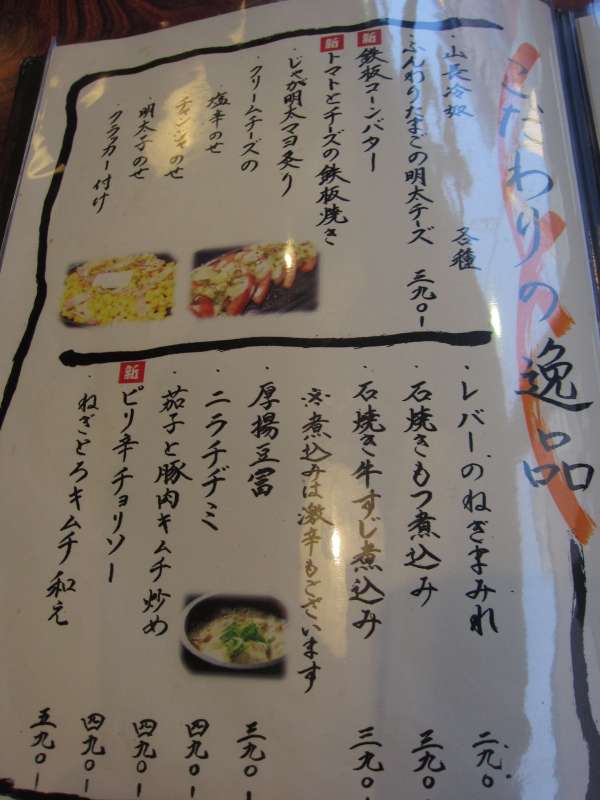 こだわりの逸品
・山長冷奴 各種
・ふんわりたまごの明太チーズ 三九〇ー
新 鉄板コーンバター
新 トマトとチーズの鉄板焼き
・じゃが明太マヨ炙り
・クリームチーズの
・塩辛のせ
・チャンジャのせ
・明太子のせ
・クラッカー付け
・レバーのねぎまみれ 二九〇
・石焼きもつ煮込み 三九〇
・石焼き牛すじ煮込み 三九〇ー
※煮込みは激辛もございます
・厚揚豆冨 三九〇ー
・ニラチヂミ 四九〇ー
・茄子と豚肉キムチ炒め 四九〇ー
新 ピリ辛チョリソー 四九〇ー
・ねぎとろキムチ和え 五九〇ー